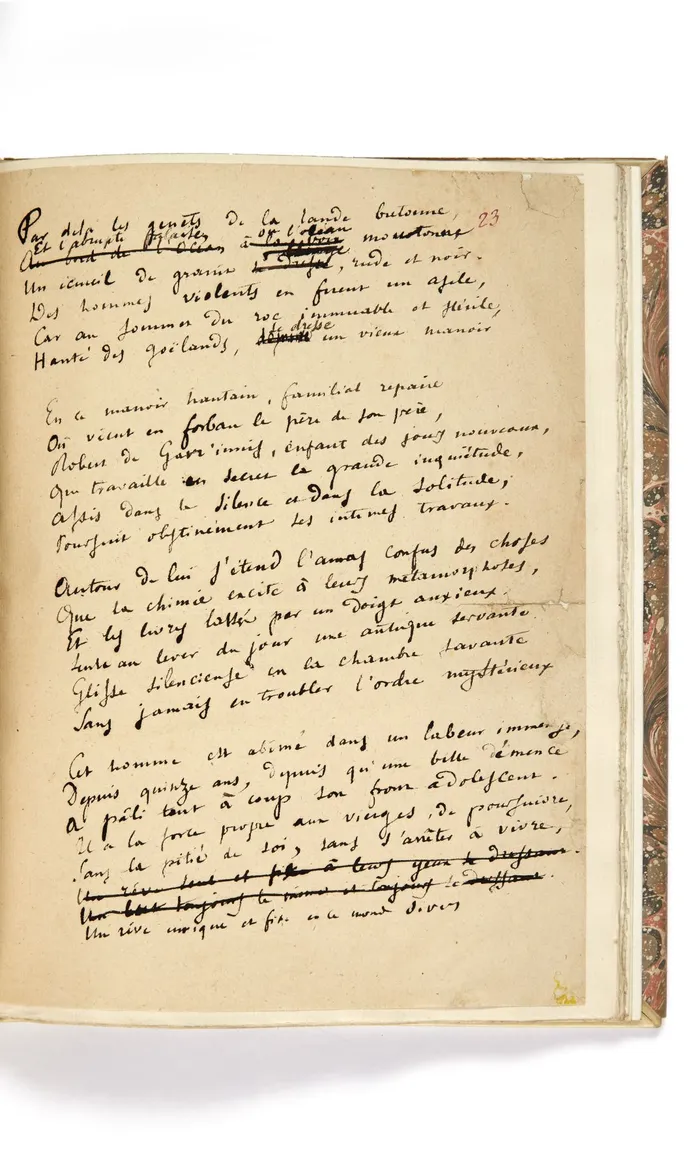 23
Par delà les genêts de la lande bretonne,
Et l'abrupte où l'océan
Au bord de l'Océan à monotone
Un écueil de granit se dresse, rude et noir.
Des hommes violents en firent un asile,
Car au sommet du roc immuable et stérile,
se dresse
Hanté des goëlands, un vieux manoir
En ce manoir hautain, familial repaire
Où vécut en forban le père de son père,
Robert de Garr'innis, enfant des jours nouveaux,
Que travaille en secret la grande inquiétude,
Assis dans le silence et dans la solitude,
Poursuit obstinément ses intimes travaux.
Autour de lui s'étend l'amas confus des choses
Que la chimie excite à leurs métamorphoses,
Et les livres lassés par un doigt anxieux.
Seule au lever du jour une antique servante
Glisse silencieuse en la chambre savante
Sans jamais en troubler l'ordre mystérieux
Cet homme est abîmé dans un labeur immense,
Depuis quinze ans, depuis qu'une belle démence
A pâli tout à coup son front adolescent.
Il a la force propre aux vierges, de poursuivre,
Sans la pitié de soi, sans s'arrêter à vivre,
Un rêve seul et fixe à leurs yeux se dressant.
Un but toujours le même et toujours se dressant.
Un rêve unique et fixe en ce monde divers